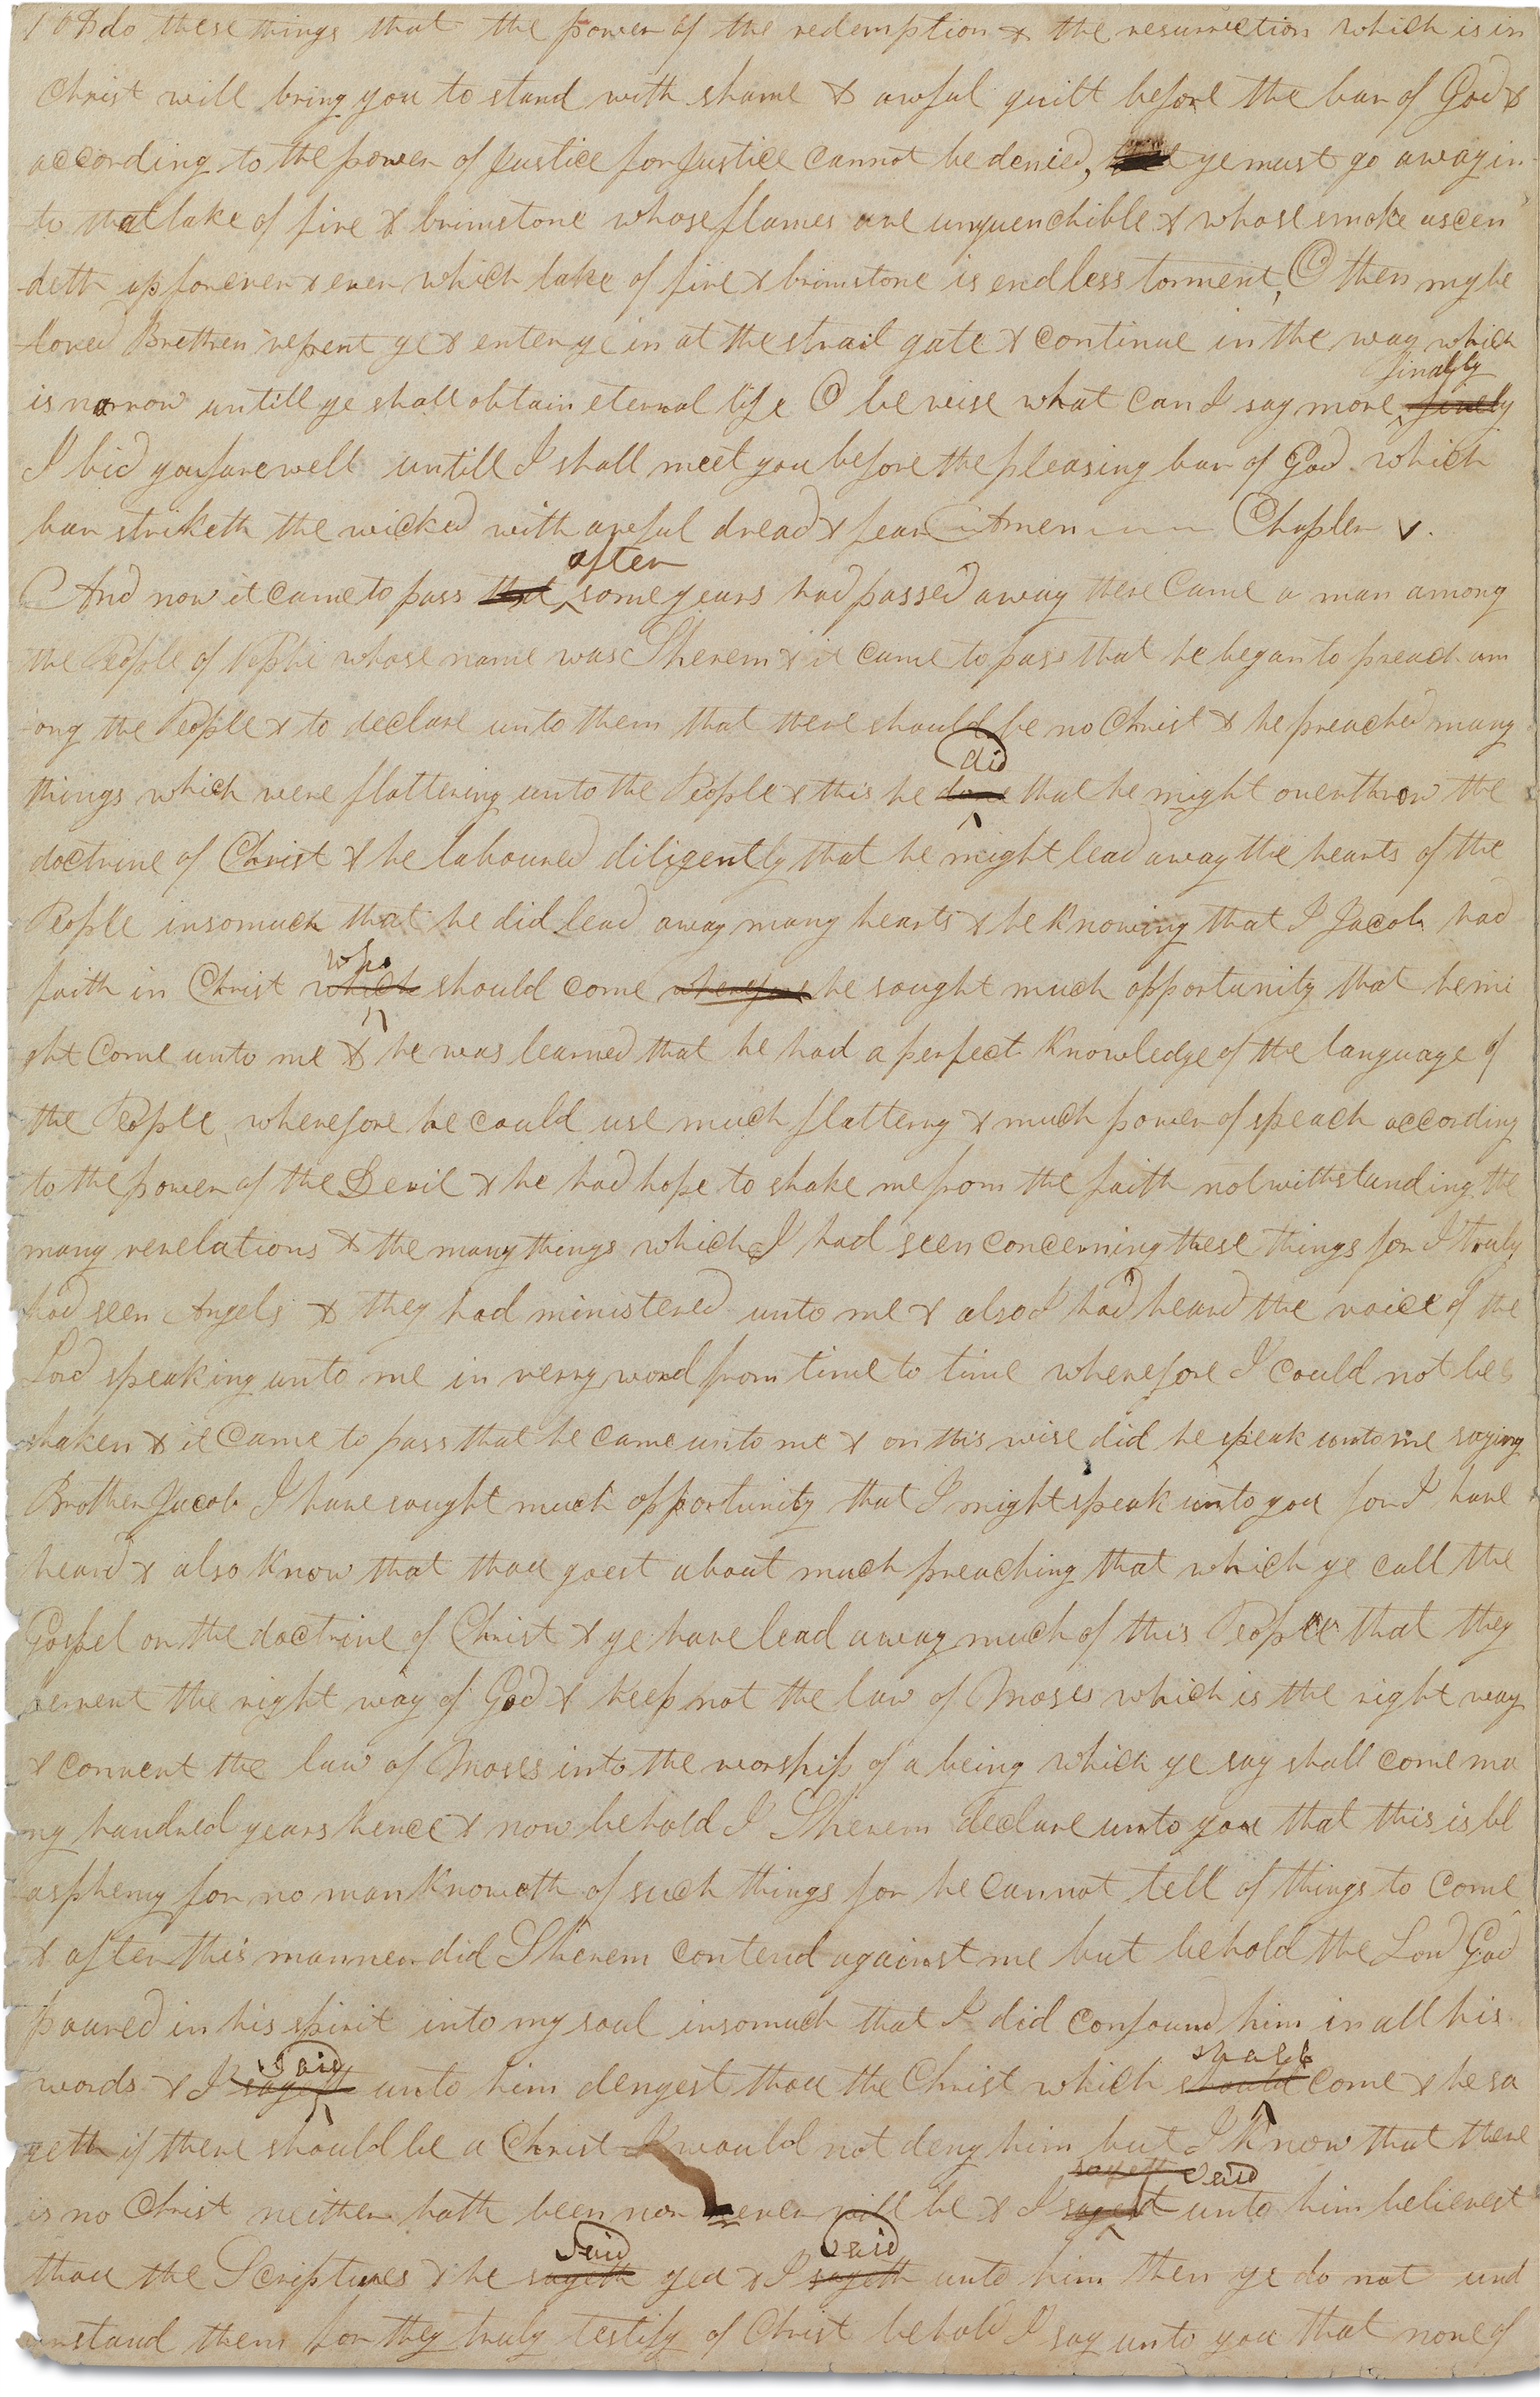 108 do these things that the power of the redemption & the resurrection which is in
Christ will bring you to stand with shame & awful guilt before the bar of God &
according to the power of Justice for Justice cannot be denied, ye must go away in
to that lake of fire & brimstone whose flames are unquenchible & whose smoke ascen
deth up forever & ever which lake of fire & brimstone is endless torment, O then my be
loved Brethren repent ye & enter ye in at the strait gate & continue in the way which
finally
is narrow untill ye shall obtain eternal life O be wise what can I say more finely
I bid you farewell untill I shall meet you before the pleasing bar of God which
bar striketh the wicked with awful dread & fear Amen Chapter V.
after
And now it came to pass that some years had passed away there came a man among
the People of Nephi whose name was Sherem & it came to pass that he began to preach am
ong the People & to declare unto them that there should be no Christ & he preached many
did
things which were flattering unto the People & this he done that he might overthrow the
doctrine of Christ & he laboured diligently that he might lead away the hearts of the
People insomuch that he did lead away many hearts & he knowing that I Jacob had
who
faith in Christ which should come wherefore he sought much opportunity that he mi
ght come unto me & he was learned that he had a perfect knowledge of the language of
the People wherefore he could use much flattery & much power of speach according
to the power of the Devil & he had hope to shake me from the faith notwithstanding the
many revelations & the many things which I had seen concerning these things for I truly
had seen Angels & they had ministered unto me & also I had heard the voice of the
Lord speaking unto me in verry word from time to time wherefore I could not be s
haken & it came to pass that he came unto me & on this wise did he speak unto me saying
Brother Jacob I have sought much opportunity that I might speak unto you for I have
heard & also know that thou goest about much preaching that which ye call the
Gospel or the doctrine of Christ & ye have lead away much of this People that they
pervert the right way of God & keep not the law of Moses which is the right way
& convert the law of Moses into the worship of a being which ye say shall come ma
ny hundred years hence & now behold I Sherem declare unto you that this is bl
asphemy for no man knoweth of such things for he cannot tell of things to come
& after this manner did Sherem contend against me but behold the Lord God
poured in his spirit into my soul insomuch that I did confound him in all his
said shall
words & I sayeth unto him denyest thou the Christ which should come & he sa
yeth if there should be a Christ I would not deny him but I know that there
sayeth said
is no Christ neither hath been nor never will be & I sayest unto him believest
said said
thou the Scriptures & he sayeth yea & I sayeth unto him then ye do not und
erstand them for they truly testify of Christ behold I say unto you that none of